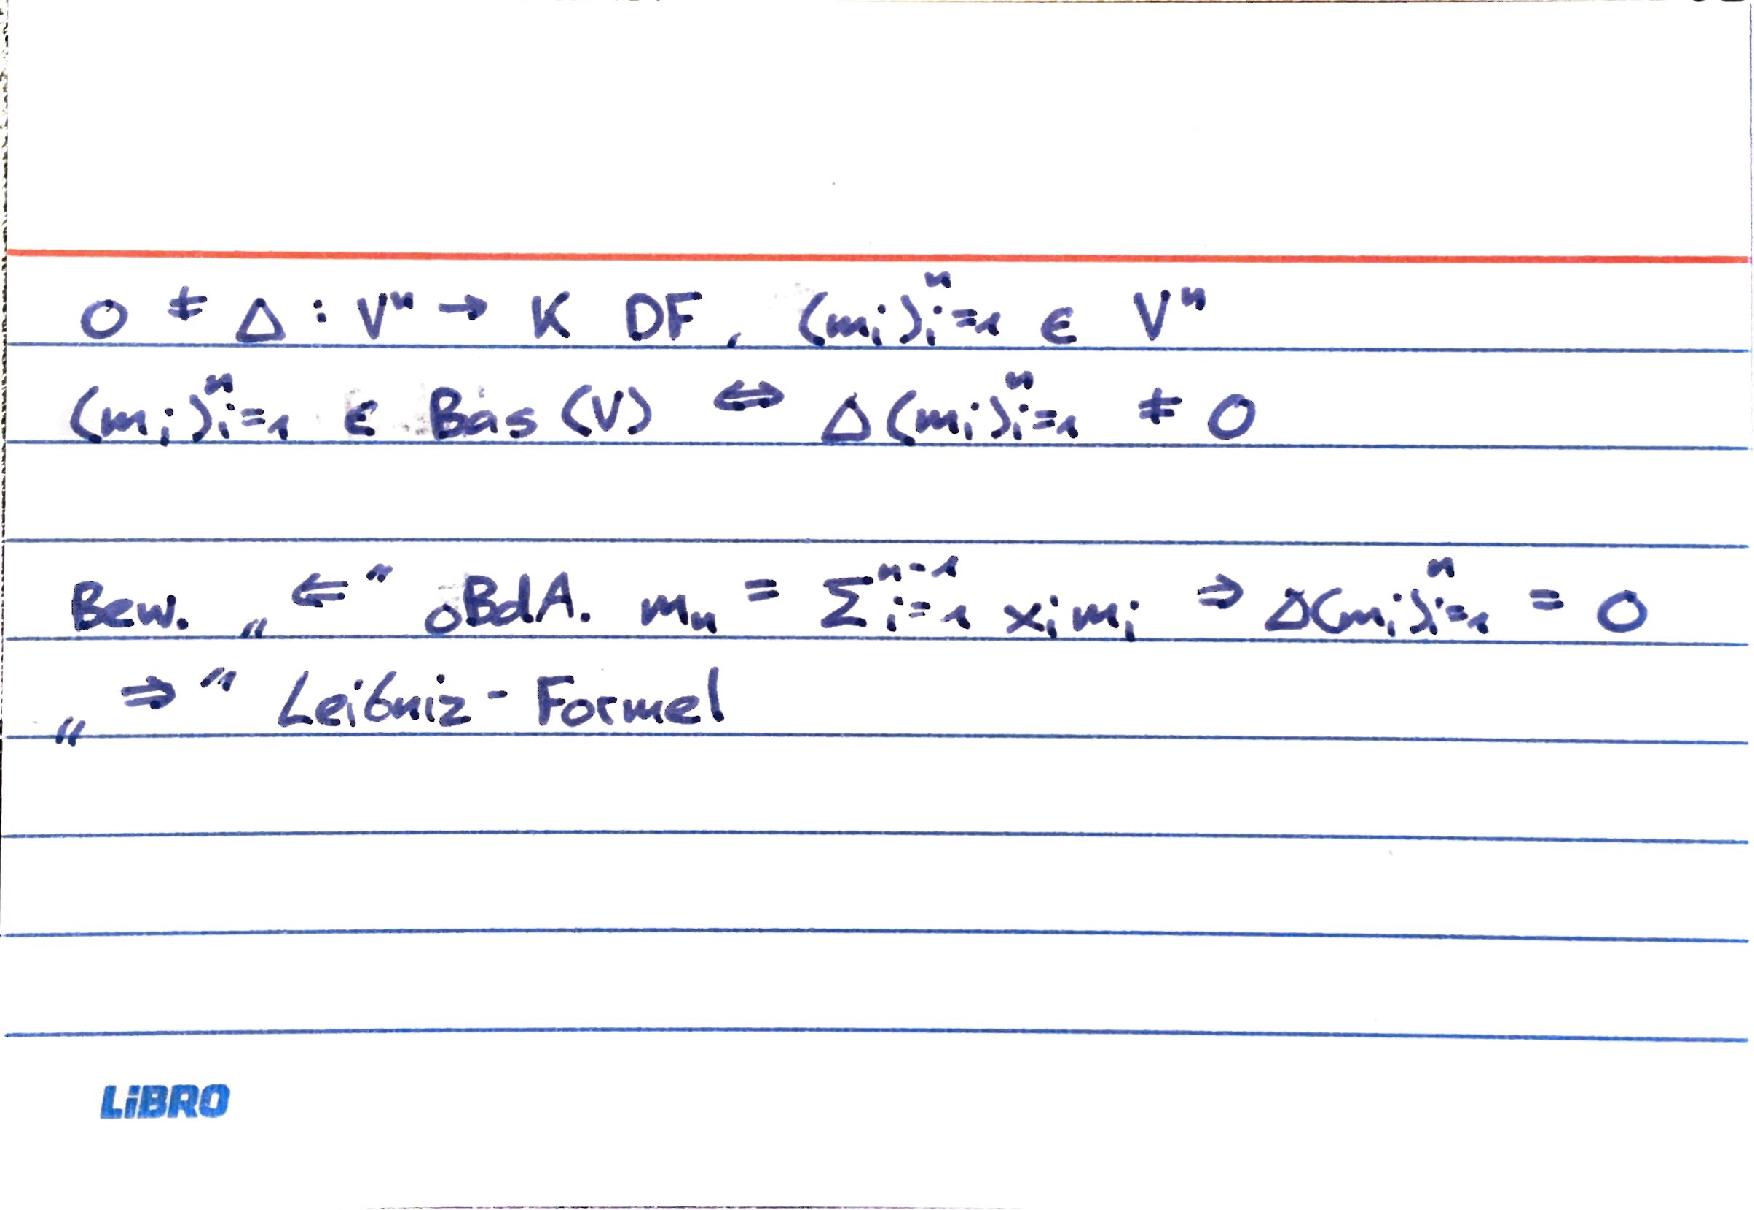 0 ≠ Δ : Vⁿ → K DF, (mᵢ)ⁿᵢ₌₁ ∈ Vⁿ
(mᵢ)ⁿᵢ₌₁ ∈ Bas (V) ⇔ Δ(mᵢ)ⁿᵢ₌₁ ≠ 0
Bew. „⇐“ oBdA. mₙ = Σⁿ⁻¹ᵢ₌₁ xᵢmᵢ ⇒ Δ(mᵢ)ⁿᵢ₌₁ = 0
„⇒“ Leibniz-Formel
LiBRO